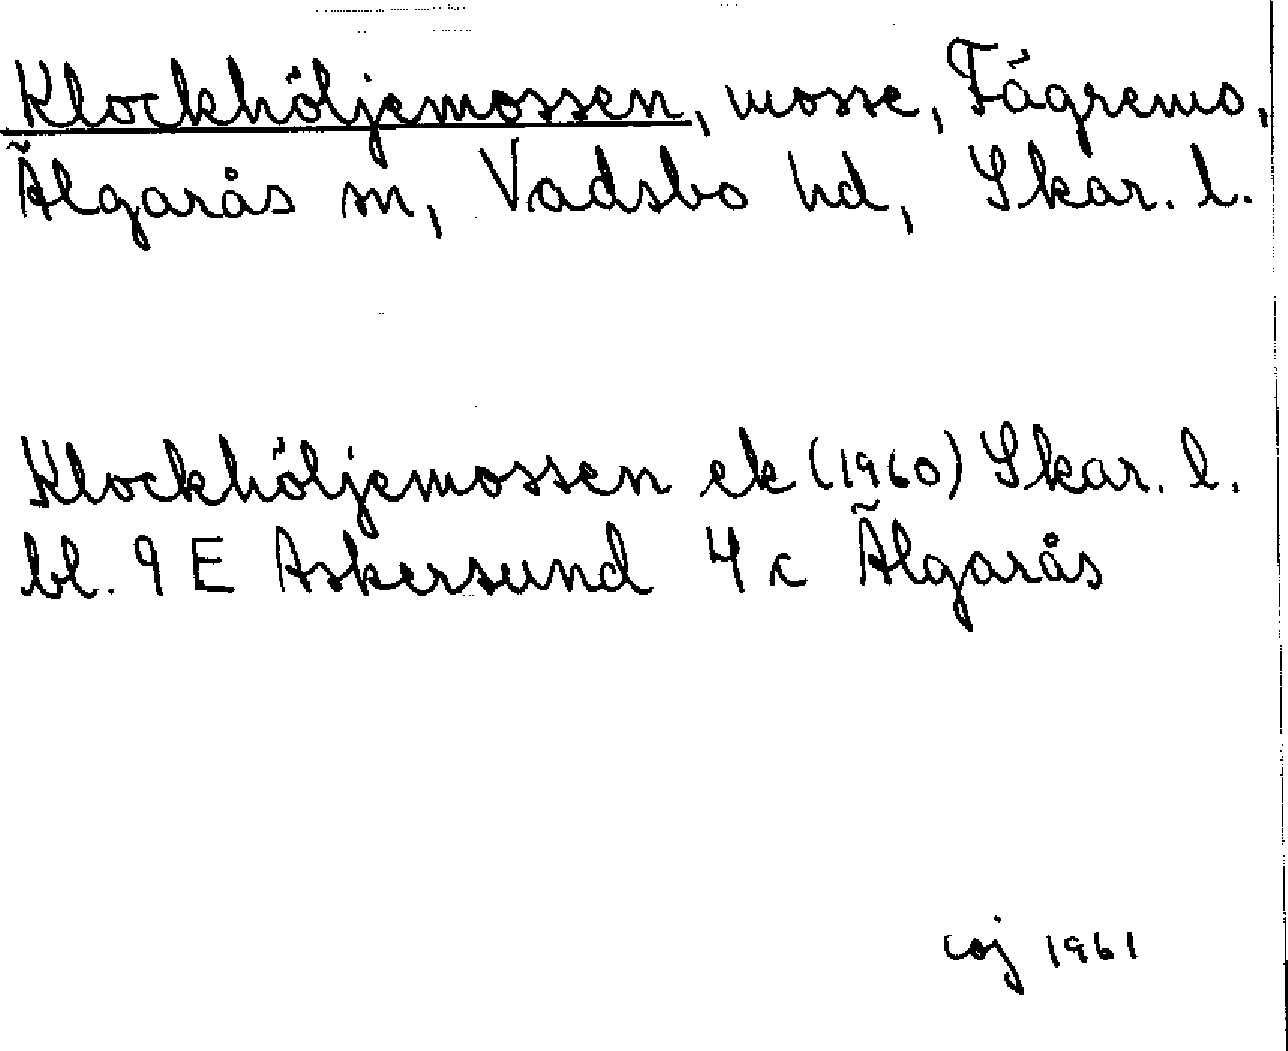 Klockhöljemossen, mosse, Fägremo,
Älgarås sn, Vadsbo hd, Skar. l.
Klockhöljemossen ek (1960) Skar. l.
bl. 9 E Askersund 4 c Älgarås
coj 1961